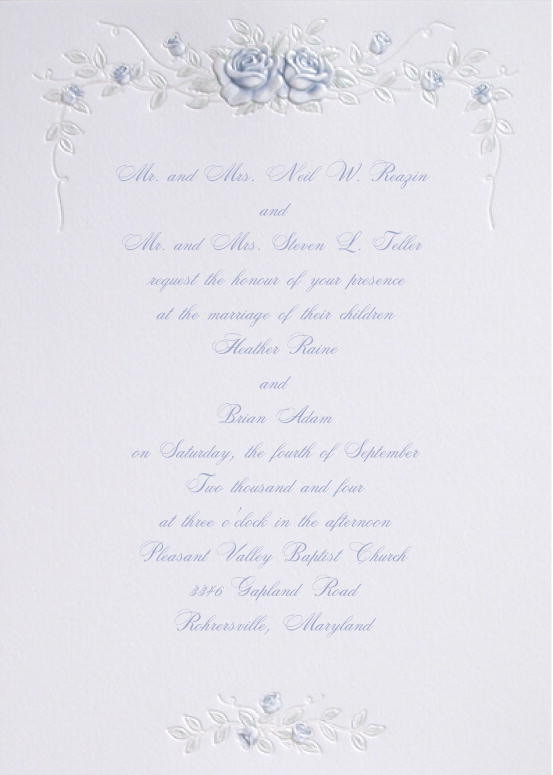 Mr. and Mrs. Neil W. Reazin
and
Mr. and Mrs. Steven L. Teller
request the honour of your presence
at the marriage of their children
Heather Raine
and
Brian Adam
on Saturday, the fourth of September
Two thousand and four
at three o'clock in the afternoon
Pleasant Valley Baptist Church
3346 Gapland Road
Rohrersville, Maryland